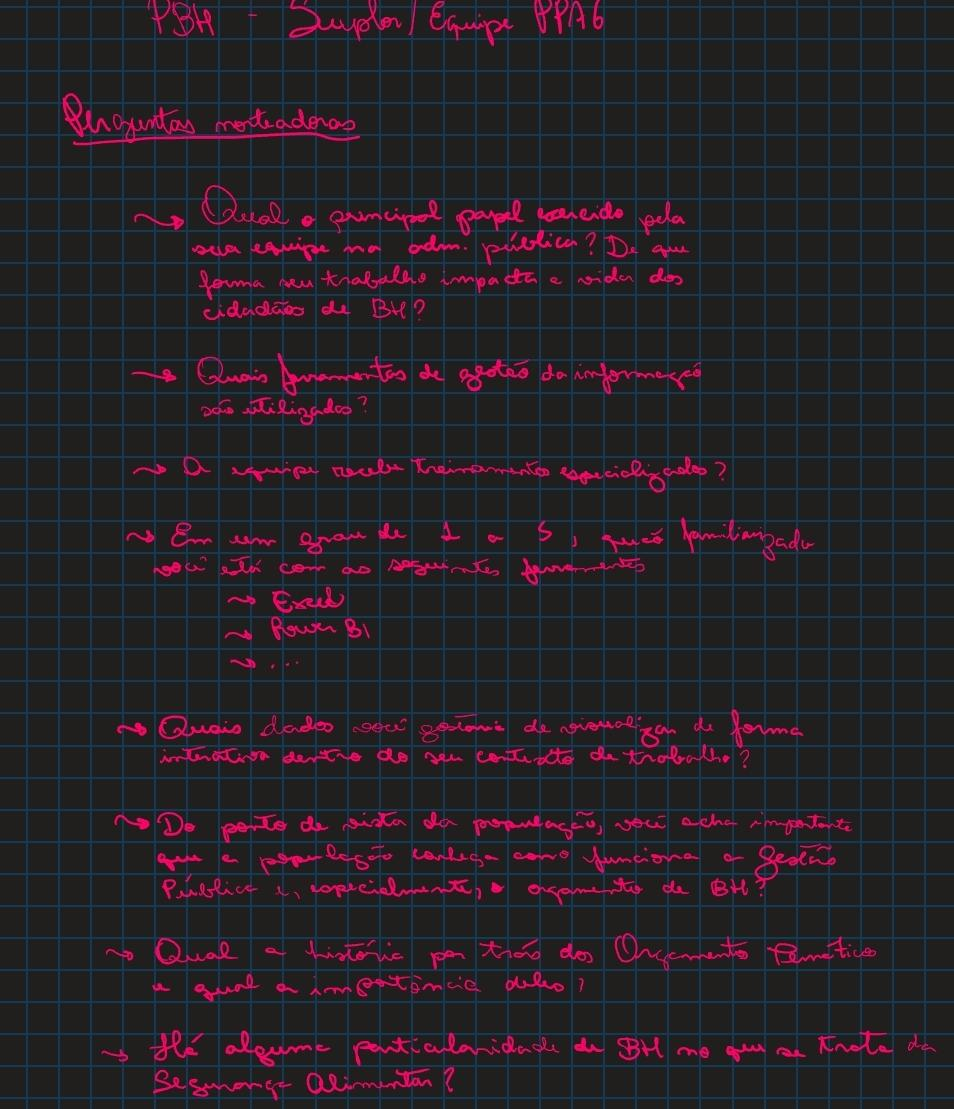 PBH - Suplor/Equipe PPAG
Perguntas norteadoras
→ Qual o principal papel exercido pela
sua equipe na adm. pública? De que
forma seu trabalho impacta a vida dos
cidadãos de BH?
→ Quais ferramentas de gestão da informação
são utilizadas?
→ A equipe recebe treinamentos especializados?
→ Em um grau de 1 a 5, quão familiarizado
você está com as seguintes ferramentas
→ Excel
→ Power BI
→ ...
→ Quais dados você gostaria de visualizar de forma
interativa dentro do seu contexto de trabalho?
→ Do ponto de vista da população, você acha importante
que a população conheça como funciona a Gestão
Pública e, especialmente, o orçamento de BH?
→ Qual a história por trás dos Orçamento Temático
e qual a importância deles?
→ Há alguma particularidade de BH no que se trata da
Segurança Alimentar?